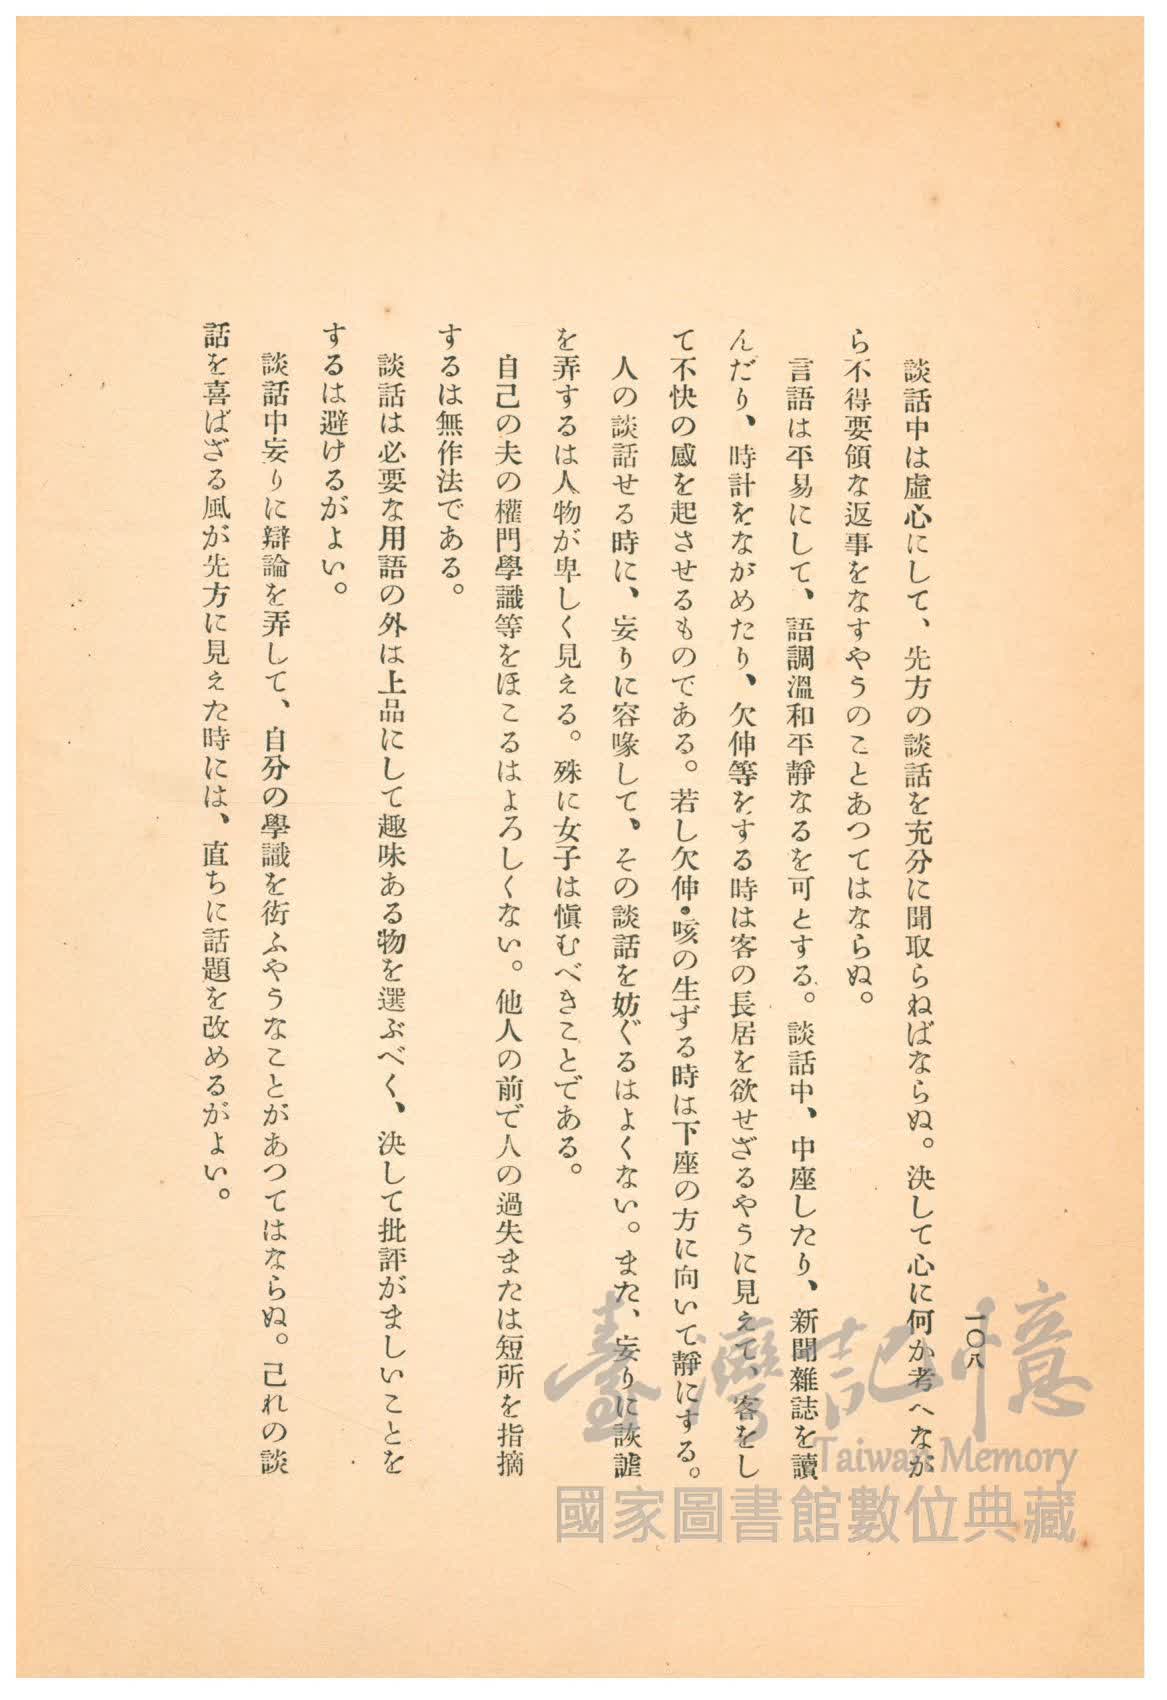 一〇八
談話中は虛心にして、先方の談話を充分に聞取らねばならぬ。決して心に何か考へなが
ら不得要領な返事をなすやうのことあつてはならぬ。
言語は平易にして、語調溫和平靜なるを可とする。談話中、中座したり、新聞雜誌を讀
んだり、時計をながめたり、欠伸等をする時は客の長居を欲せざるやうに見えて、客をし
て不快の感を起させるものである。若し欠伸・咳の生ずる時は下座の方に向いて靜にする。
人の談話せる時に、妄りに容喙して、その談話を妨ぐるはよくない。また、妄りに詼謔
を弄するは人物が卑しく見える。殊に女子は愼むべきことである。
自己の夫の權門學識等をほこるはよろしくない。他人の前で人の過失または短所を指摘
するは無作法である。
談話は必要な用語の外は上品にして趣味ある物を選ぶべく、決して批評がましいことを
するは避けるがよい。
談話中妄りに辯論を弄して、自分の學識を衒ふやうなことがあつてはならぬ。己れの談
話を喜ばざる風が先方に見えた時には、直ちに話題を改めるがよい。
臺灣記憶
Taiwan Memory
國家圖書館數位典藏